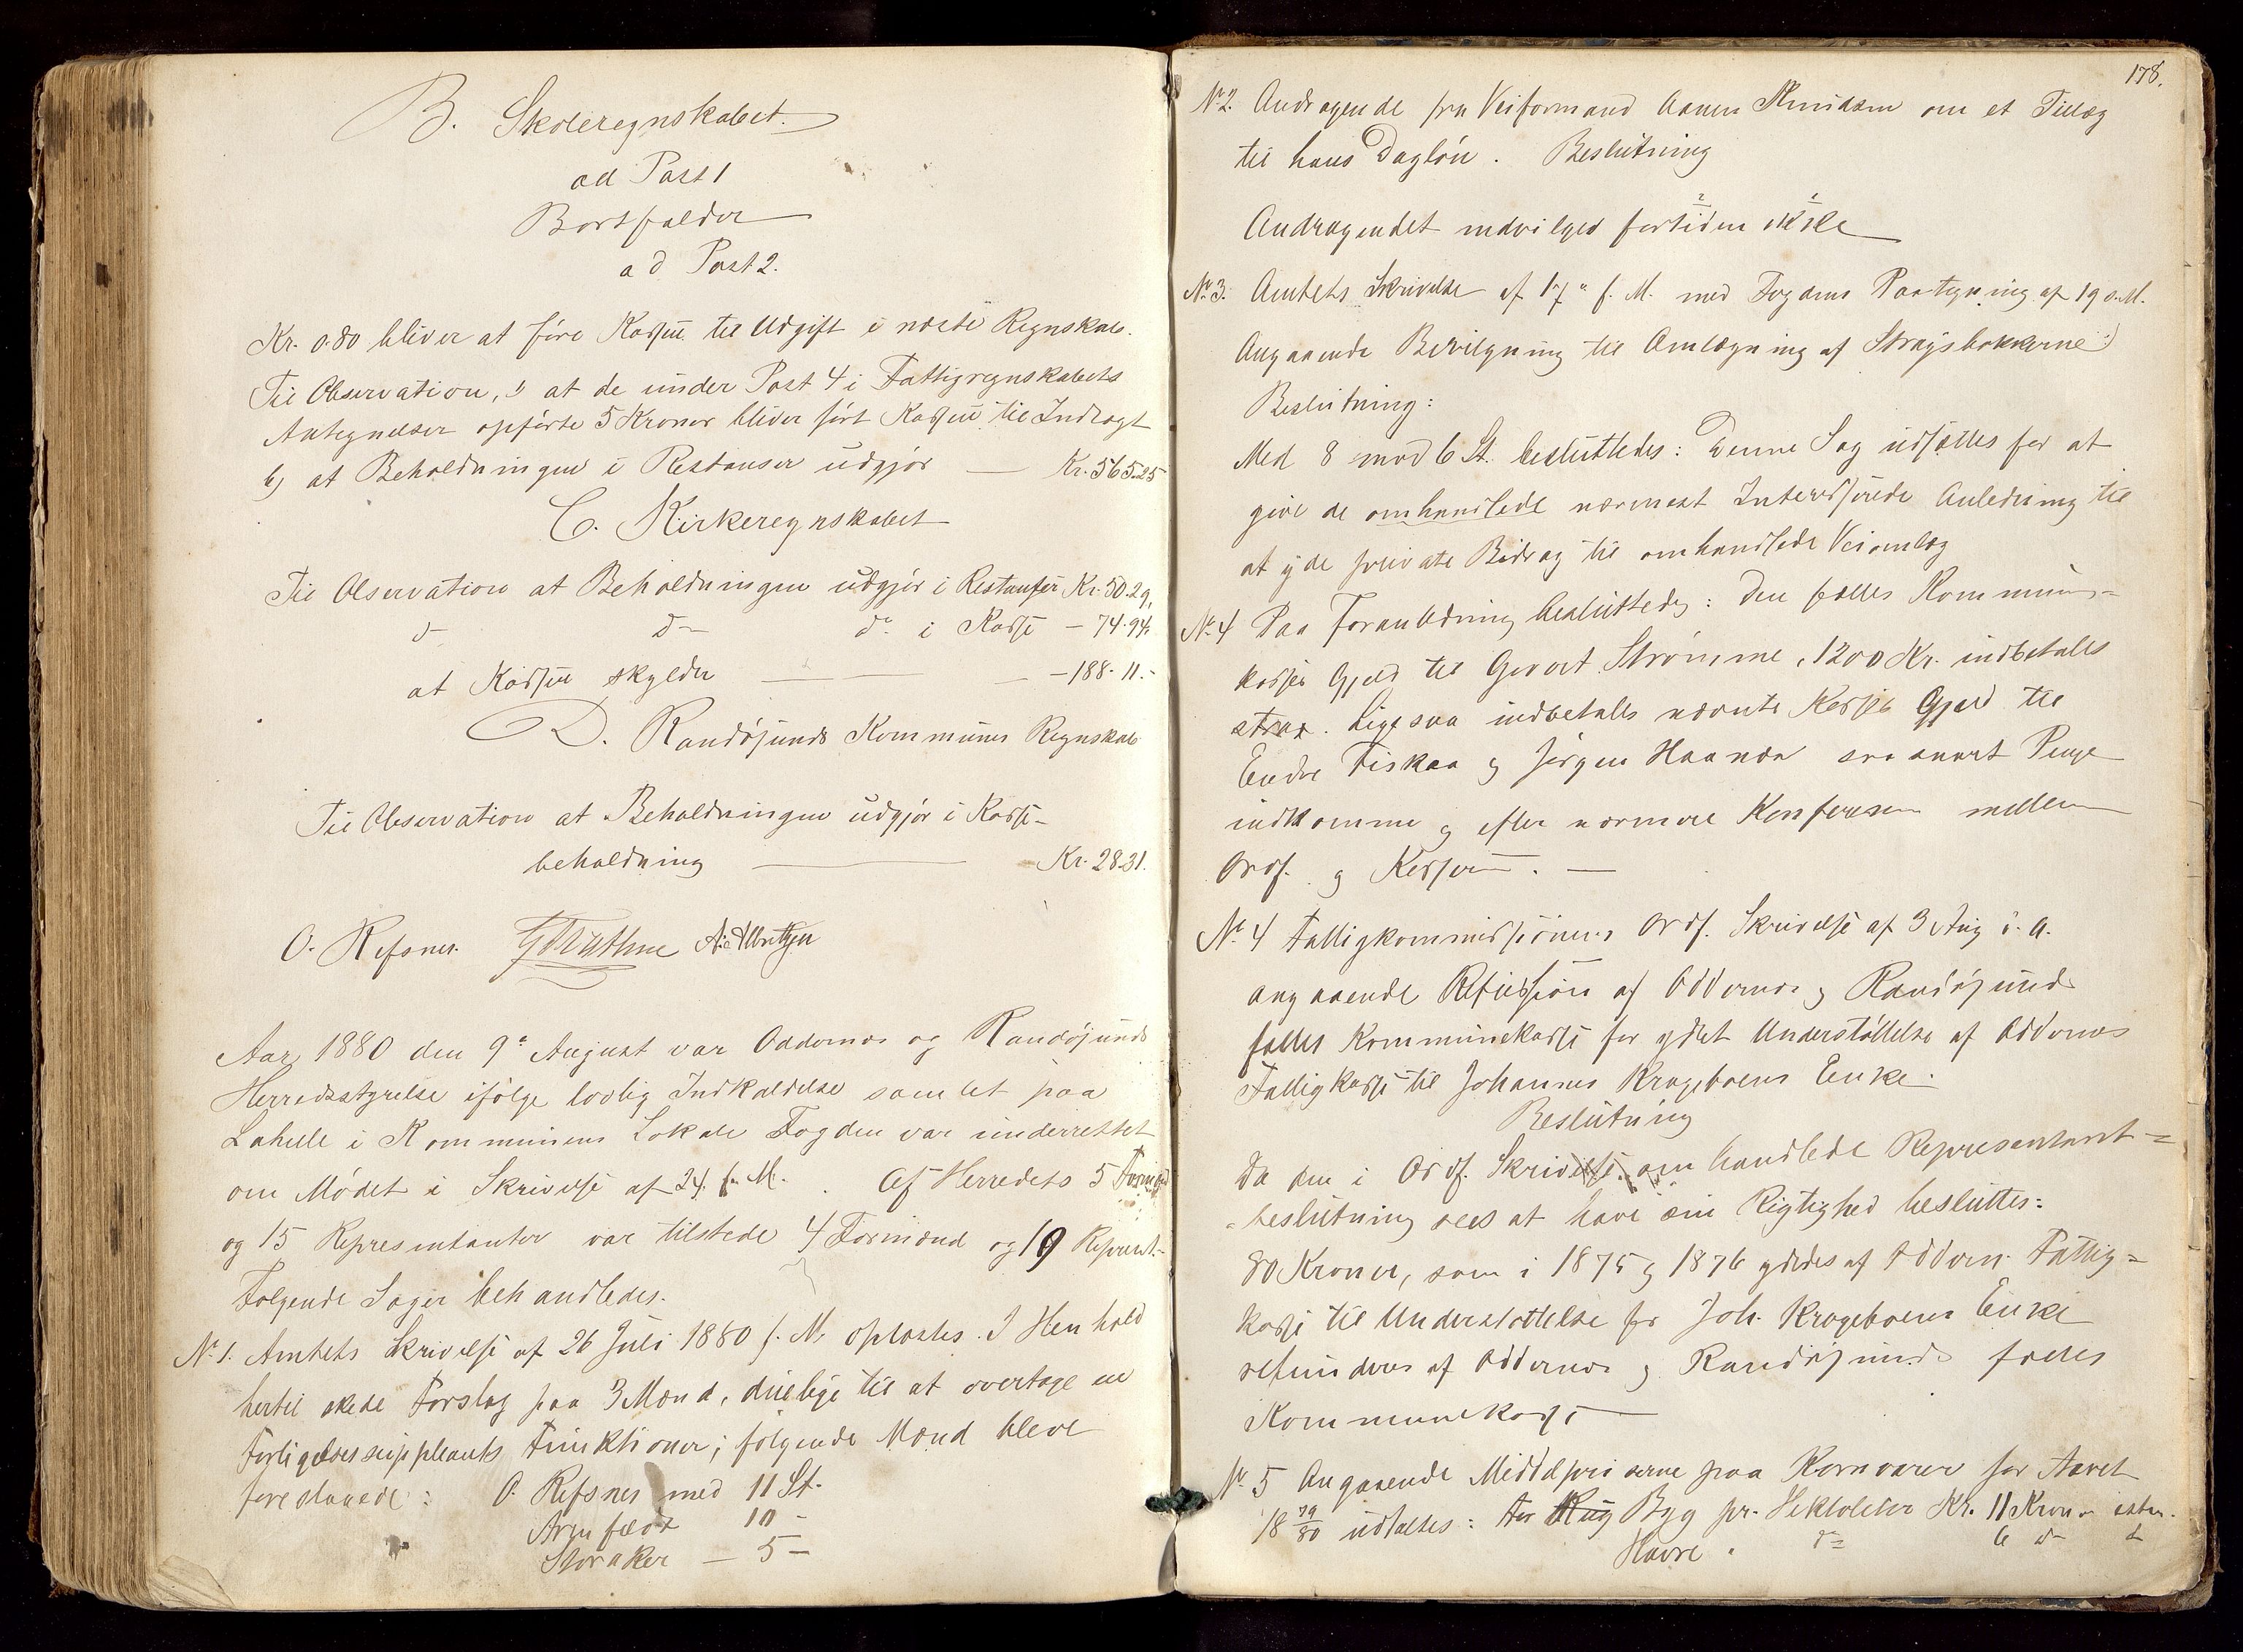 B. Skoleregnskabet.
ad Post 1
Bortfalder
ad Post 2.
Kr. 0.80 bliver at føre Kassen til Udgift i næste Regnskab.
Til Observation, at de under Post 4 i Fattigregnskabets
Antegnelser opførte 5 Kroner bliver ført Kassen til Indtægt
b) at Beholdningen i Restanser udgjør — Kr. 565.25
C. Kirkeregnskabet
Til Observation at Beholdningen udgjør i Restanser Kr. 50.29.
d— d— do i Kasse — 74.94.
at Kassen skylder — — — 188.11.-
D. Randøsunds Kommunes Regnskab
Til Observation at Beholdningen udgjør i Kasse-
beholdning — Kr. 28.31.
O. Refsnes.
Aar 1880 den 9de August var Oddernes og Randøsunds
Herredsstyrelse ifølge lovlig Indkaldelse samlet paa
Lahelle i Kommunens Lokale Fogden var underrettet
om Mødet i Skrivelse af 24. f. M. Af Herredets 5 Formænd
og 15 Representanter var tilstede 4 Formænd og 10 Represent.-
Følgende Sager behandledes.
No 1. Amtets Skrivelse af 26 Juli 1880 f. M. oplæstes. I Henhold
hertil skede Forslag paa 3 Mænd, duelige til at overtage en
Forligelsessuppleants Funktioner; følgende Mænd bleve
foreslaaede: O. Refsnes med 11 St.
Arenfeldt 10 -
Storaker — 5 —
178.
No 2. Andragende fra Veiformand Aanen Knudsen om et Tillæg
til hans Dagløn. Beslutning
Andragendet indvilges fortiden ikke
No 3. Amtets Skrivelse af 17de f. M. med Fogdens Paategning af 19 s. M.
Angaaende Bevilgning til Omlægning af Stragsbakkerne
Beslutning:
Med 8 mod 6 St. besluttedes: Denne Sag udsættes for at
give de omhandlede nærmest Interesserede Anledning til
at yde private Bidrag til omhandlede Veiomlæg
No 4 Paa Foranledning besluttedes: Den fælles Kommune-
kasses Gjeld til Govert Strømme, 1200 Kr. indbetales
strax. Ligesaa indbetales nævnte Kasses Gjeld til
Endre Fiskaa og Jørgen Haanes saa snart Penge
indkomme og efter nærmere Konferense mellem
Ordf. og Kassereren. —
No 4 Fattigkommissionens Ordf. Skrivelse af 3 Aug d. A.
angaaende Refussion af Oddernes og Randøsunds
fælles Kommunekasse for ydet Understøttelse af Oddernes
Fattigkasse til Johannes Krageboens Enke.
Beslutning
Da den i Ordf. Skrivelse omhandlede Representant=
=beslutning sees at have sin Rigtighed besluttes:
80 Kroner, som i 1875 og 1876 ydedes af Oddern. Fattig=
kasse til Understøttelse for Joh. Krageboens Enke
refunderes af Oddernes og Randøsunds fælles
Kommunekasse —
No 5 Angaaende Middelpriserne paa Kornvarer for Aaret
18 79/80 udtaltes: for Rug Byg pr. Hektoliter Kr. 11 Kroner
Havre " d= 6 d—